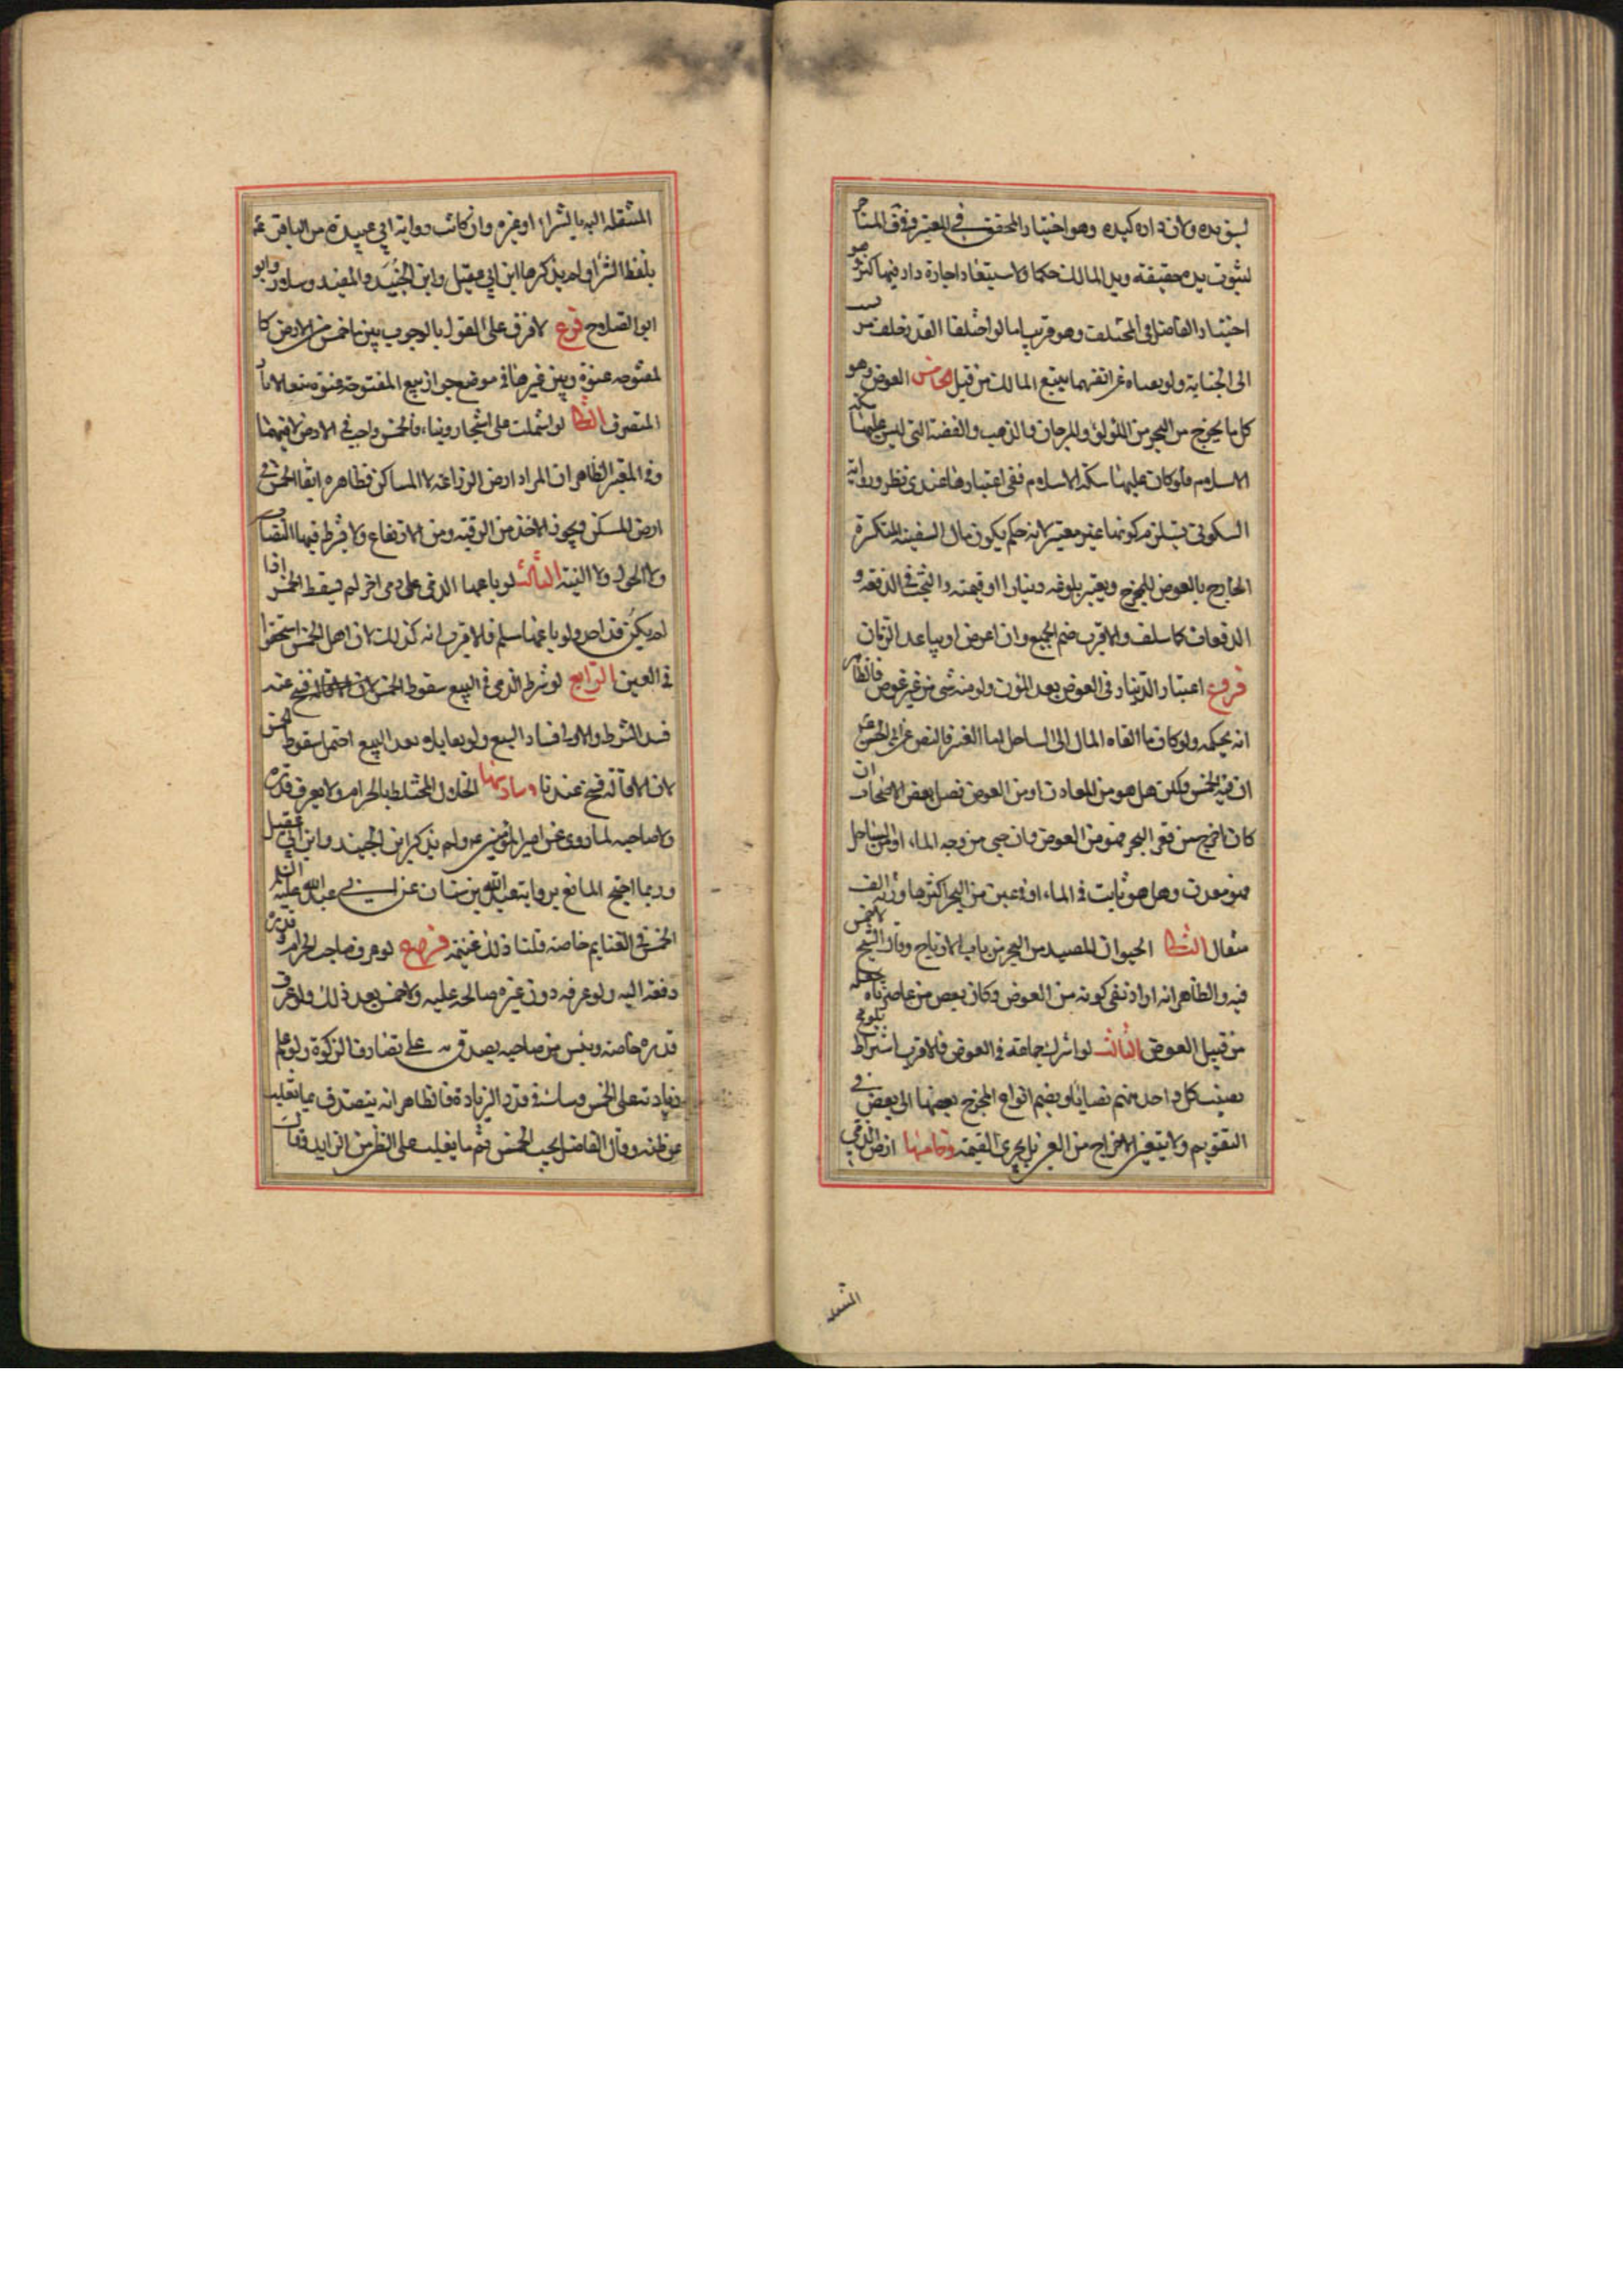 لسبق يده ولان داره كيده وهو اختيار المحقق في المعتبر وفوّق المستاجر
لثبوت يده حقيقة ويد المالك حكما ولاستبعاد اجارة دار فيها كنز وهو
اختيار الفاضل في المختلف وهو قريب اما لو اختلفا القدر حلف
الى الخيانة ولو نفياه عن انفسهما تتبع المالك من قبل الخامس الغوص وهو
كل ما يخرج من البحر من اللؤلؤ والمرجان والذهب والفضة التي ليس عليهما سكة
الاسلام فلو كان عليهما سكة الاسلام ففي اعتبارها عندي نظر ورواية
السكوني يستلزم كونها غير معتبر لانه حكم بكون مال السفينة المنكسرة
الخارج بالغوص للمخرج ويعتبر بلوغه دينارا او قيمته والبحث في الدفعة و
الدفعات كما سلف والاقرب ضم الجميع وان اعرض او تباعد الزمان
فروع اعتبار الدينار في الغوص بعد المؤن ولو منه شي من غير غوص فالظاهر
انه بحكمه ولو كان مما القاه الماء الى الساحل اما العنبر فالنص عن
ان فيه الخمس ولكن هل هو من المعادن او من الغوص فصل بعض الاصحاب ان
كان اخرج من قعر البحر فهو من الغوص وان جبي من وجه الماء او من الساحل
فهو معدن وهل هو نابت في الماء او في عين من البحر اكثرها وزنه الف
مثقال الثاني الحيوان المصيد من البحر من باب الارباح وقال الشيخ لا خمس
فيه والظاهر انه اراد نفي كونه من الغوص وكان بعض من عاصرناه جعله
من قبيل الغوص الثالث لو اشترك جماعة في الغوص فالاقرب اشتراط بلوغ
نصيب كل واحد منهم نصابا ويضم انواع المخرج بعضها الى بعض في
التقويم ولا يتعين الاخراج من العين بل يجزي القيمة وخامسها ارض الذمي
المنتقلة
المنتقلة اليه بالشراء او غيره وان كانت رواية ابي عبيدة عن الباقر ع
بلفظ الشراء ولم يذكرها ابن ابي عقيل وابن الجنيد والمفيد وسلار وابو
ابو الصلاح فرع لا فرق على القول بالوجوب بين ما خمس من الارض كا
لمفتوحة عنوة وبين غيرها في موضع جواز بيع المفتوحة عنوة
المتصرف الثاني لو اشتملت على اشجار وبناء فالخمس واجب في الارض لا فيهما
وفي المعتبر الظاهر ان المراد ارض الزراعة لا المساكن وظاهره ايضا الخمس في
ارض المسكن ويجوز الاخذ من الرقبة ومن الارتفاع ولا يشترط فيها النصاب
ولا الحول ولا النية الثالث لو باعها الذمي على ذمي اخر لم يسقط الخمس اذا
لم يكن قد اخذ ولو باعها مسلم فالاقرب انه كذلك لان اهل الخمس استحقوا
في العين الرابع لو شرط الذمي في البيع سقوط الخمس عنه
فسد الشرط والاولى فساد البيع ولو تقايلا بعد البيع احتمل سقوط الخمس
لان الاقالة فسخ عندنا وسادسها الحلال المختلط بالحرام ولا يعرف قدره
ولا صاحبه لما روي عن امير المؤمنين ع ولم يذكر ابن الجنيد وابن ابي عقيل
وربما احتج المانع برواية عبد الله بن سنان عن ابي عبد الله عليه السلم
الخمس في الغنايم خاصة قلنا ذلك غنيمة فرع لو عرف صاحب الحرام وقدره
دفعه اليه ولو عرفه دون غيره صالحه عليه ولا خمس بعد ذلك ولو عرف
قدره خاصة ويئس من صاحبه يصدق به على مصارف الزكوة ولو علم
زيادته على الخمس وشك في قدر الزيادة فالظاهر انه يتصدق بما يغلب
عن ظنه وقال الفاضل يجب الخمس ثم ما يغلب على الظن من الزايد